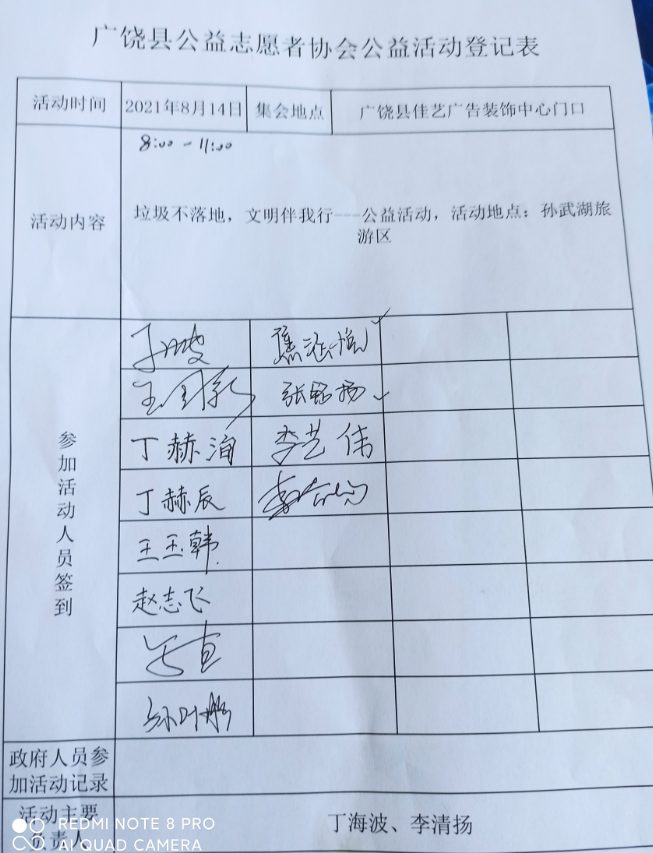 广饶县公益志愿者协会公益活动登记表
活动时间 2021年8月14日 集会地点 广饶县佳艺广告装饰中心门口
8:00-11:00
活动内容 垃圾不落地，文明伴我行---公益活动，活动地点：孙武湖旅
游区
参加活动人员签到
丁赫洵 李艺伟
丁赫辰
王玉韩
赵志飞
政府人员参
加活动记录
活动主要
负责人 丁海波、李清扬
REDMI NOTE 8 PRO
AI QUAD CAMERA